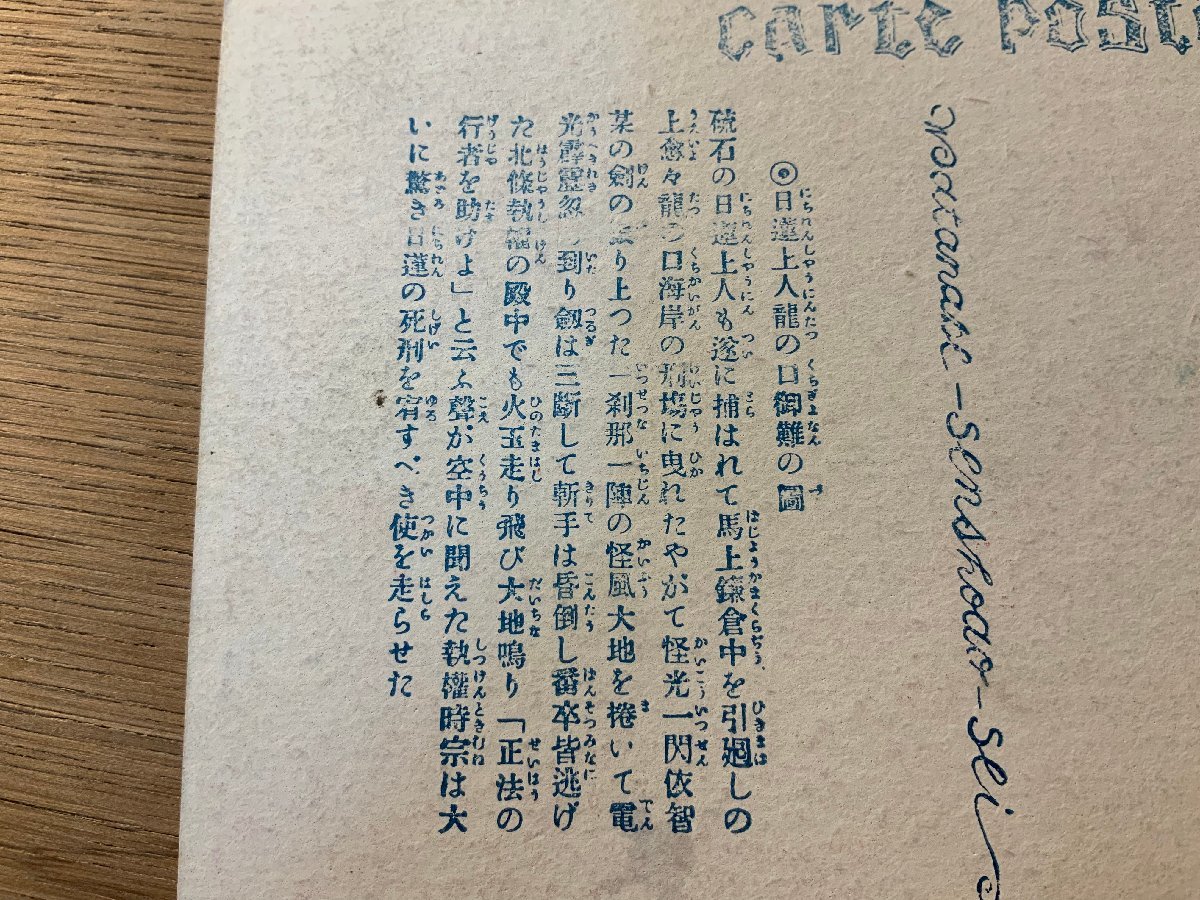 CARTE POST
Watanabe-Senshodo-Sei
◎日蓮上人龍の口御難の圖
硫石の日蓮上人も遂に捕はれて馬上鎌倉中を引廻しの
上愈々龍の口海岸の刑塲に曳れたやがて怪光一閃依智
某の劍のより上つた一刹那一陣の怪風大地を捲いて電
光霹靂忽到り劔は三斷して斬手は昏倒し番卒皆逃げ
た北條執權の殿中でも火玉走り飛び大地鳴り「正法の
行者を助けよ」と云ふ聲が空中に聞えた執權時宗は大
いに驚き日蓮の死刑を宥すべき使を走らせた